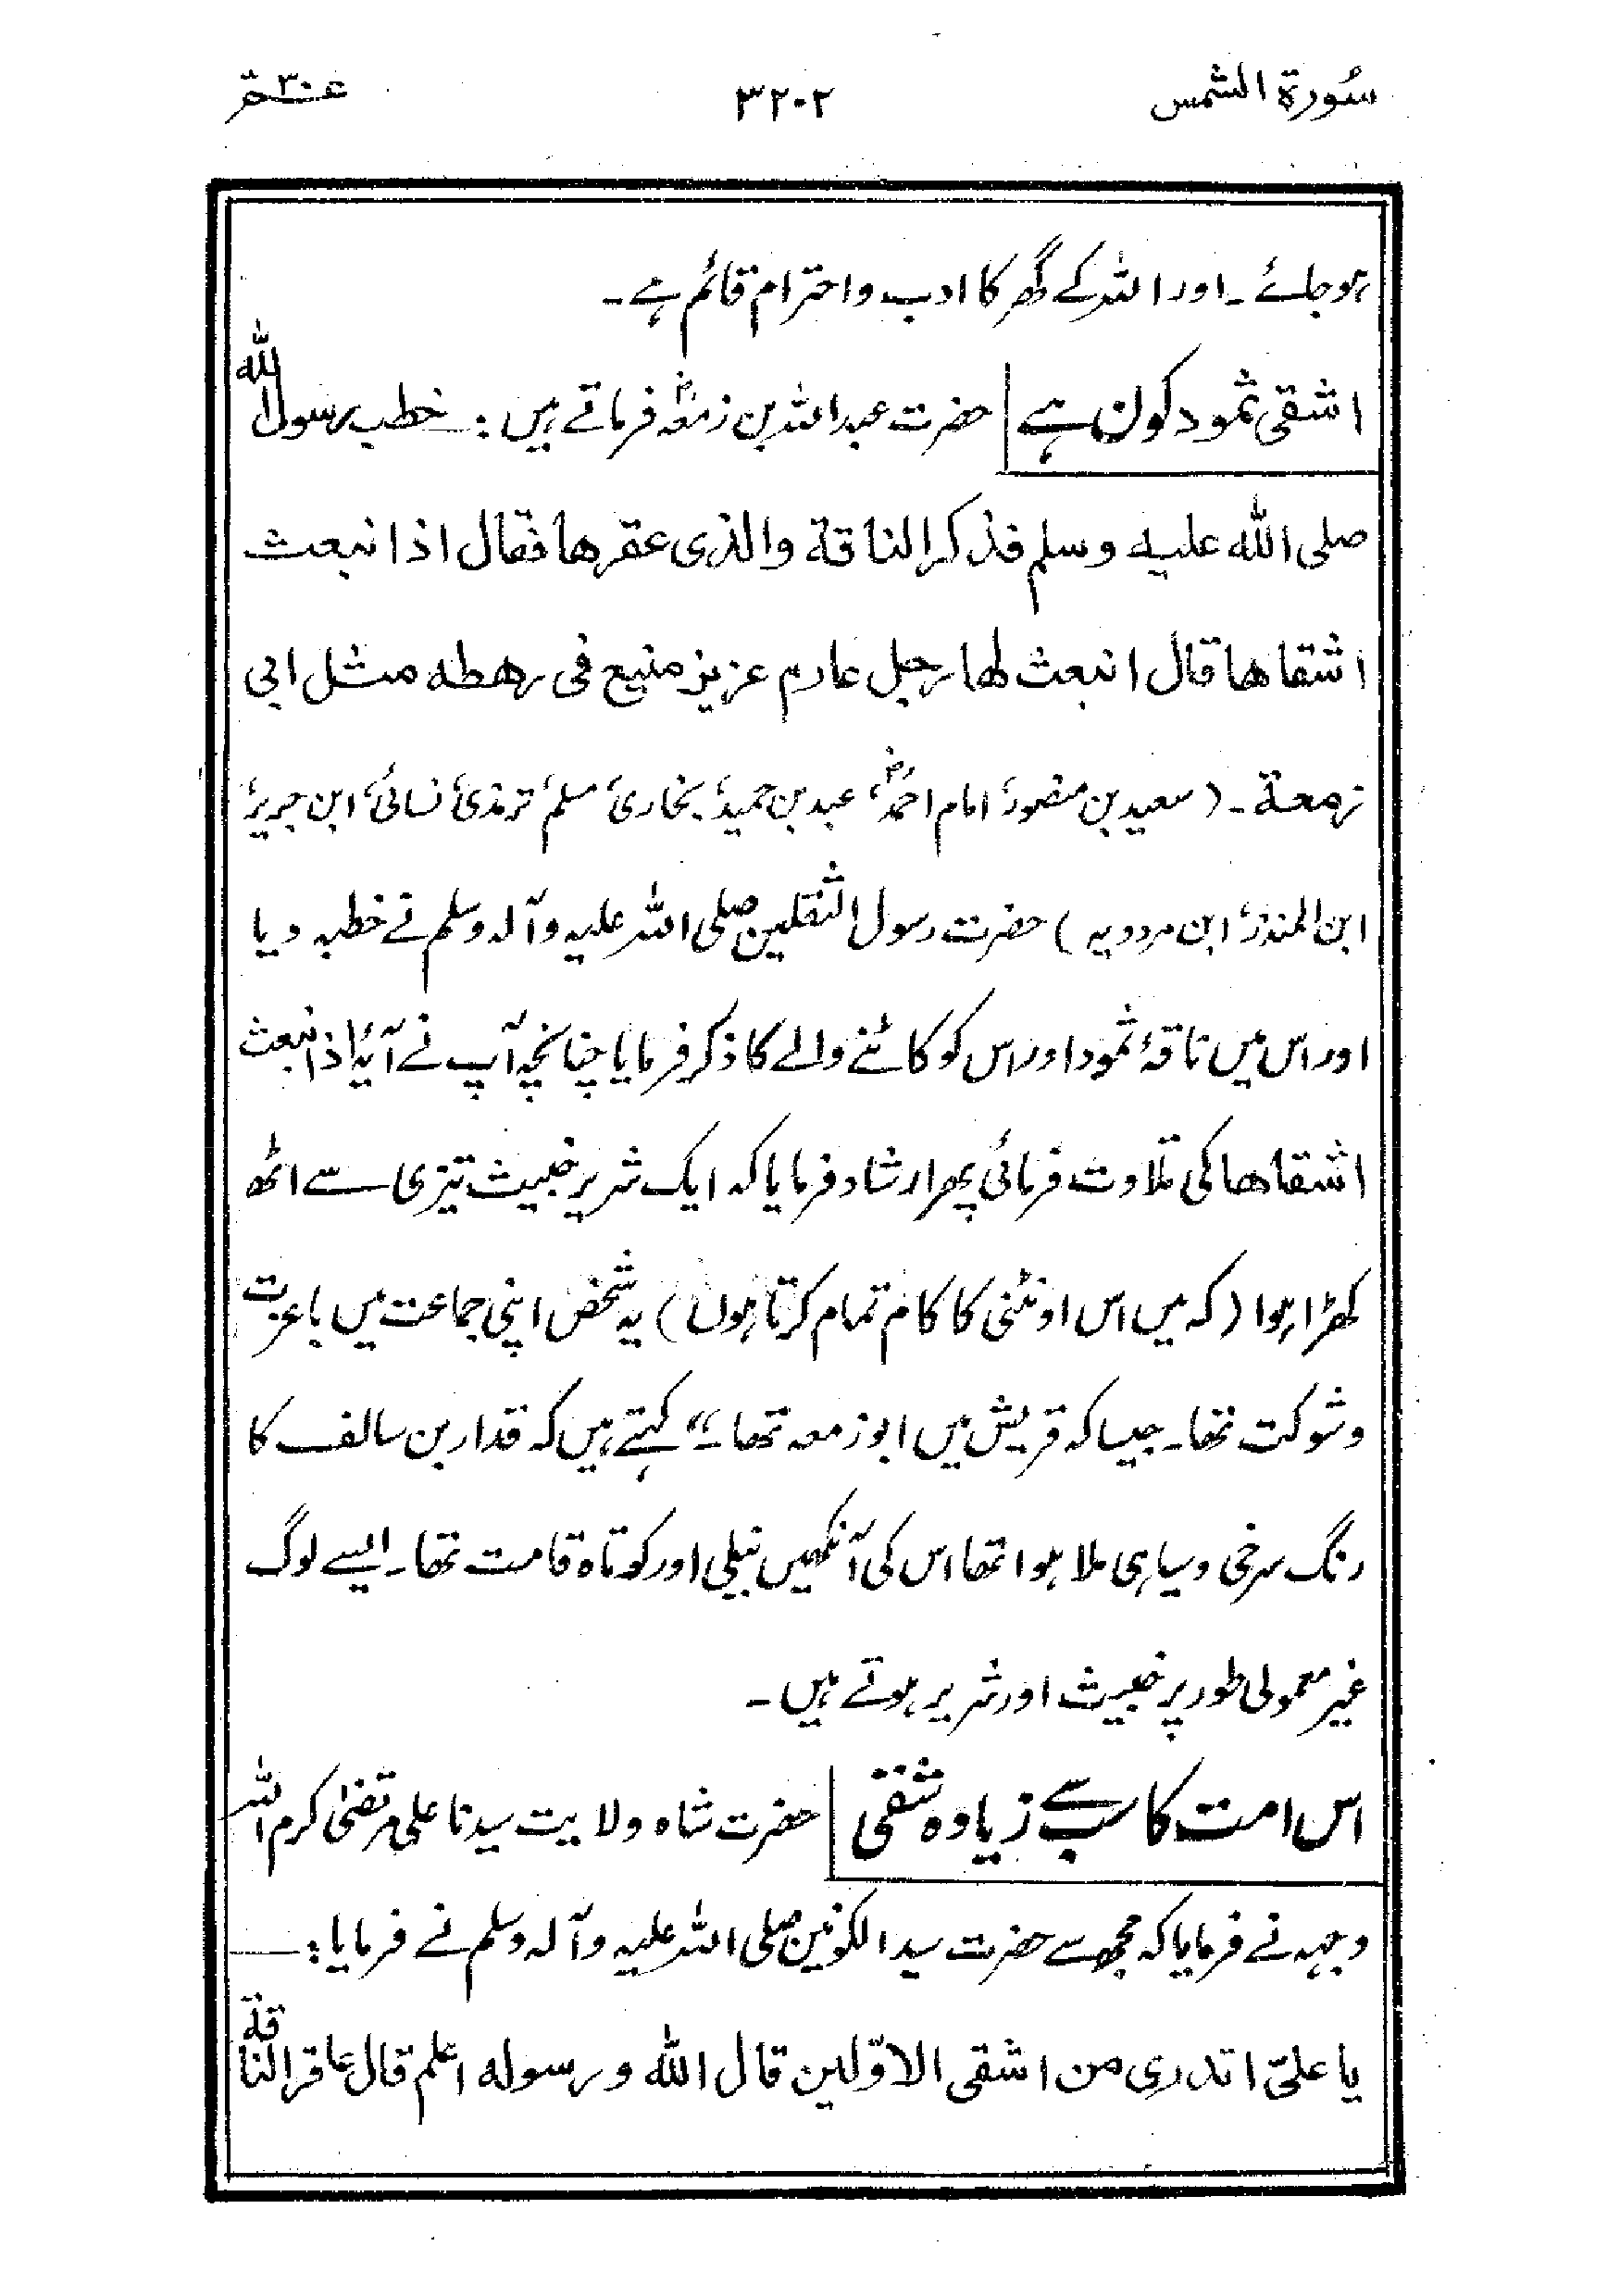 سُورة الشمس ۳۲۰۲ عم ۳۰
ہوجائے ۔ اور اللہ کے گھر کا ادب و احترام قائم ہے ۔
اشقی ثمود کون ہے حضرت عبداللہ بن زمعہؓ فرماتے ہیں : خطب رسول اللہ
صلی اللہ علیہ وسلم فذکر الناقة والذی عقرها فقال اذا نبعث
اشقاها قال انبعث لها رجل عارم عزیز منیع فی رهطه مثل ابی
زمعة ۔ (سعید بن منصورؒ امام احمدؓ، عبد بن حمیدؒ بخاریؒ مسلمؒ ترمذیؒ نسائیؒ ابن جریرؒ
ابن المنذرؒ ابن مردویہ) حضرت رسول الثقلین صلی اللہ علیہ وآلہ وسلم نے خطبہ دیا
اور اس میں ناقۂ ثمود اور اس کو کاٹنے والے کا ذکر فرمایا چنانچہ آپ نے آیۂ اذانبعث
اشقاھا کی تلاوت فرمائی پھر ارشاد فرمایا کہ ایک شریر خبیث تیزی سے اٹھ
کھڑا ہوا (کہ میں اس اونٹنی کا کام تمام کرتا ہوں) یہ شخص اپنی جماعت میں باعزت
و شوکت تھا۔ جیسا کہ قریش میں ابوزمعہ تھا۔“ کہتے ہیں کہ قدار بن سالف کا
رنگ سرخی و سیاہی ملا ہوا تھا اس کی آنکھیں نیلی اور کوتاہ قامت تھا۔ ایسے لوگ
غیر معمولی طور پر خبیث اور شریر ہوتے ہیں ۔
اس امت کا سب سے زیادہ شقی حضرت شاہ ولایت سیدنا علی مرتضیٰ کرم اللہ
وجہہ نے فرمایا کہ مجھ سے حضرت سید الکونین صلی اللہ علیہ وآلہ وسلم نے فرمایا :
یا علیّ اتدری من اشقی الاوّلین قال اللہ ورسوله اعلم قال عاقر الناقة